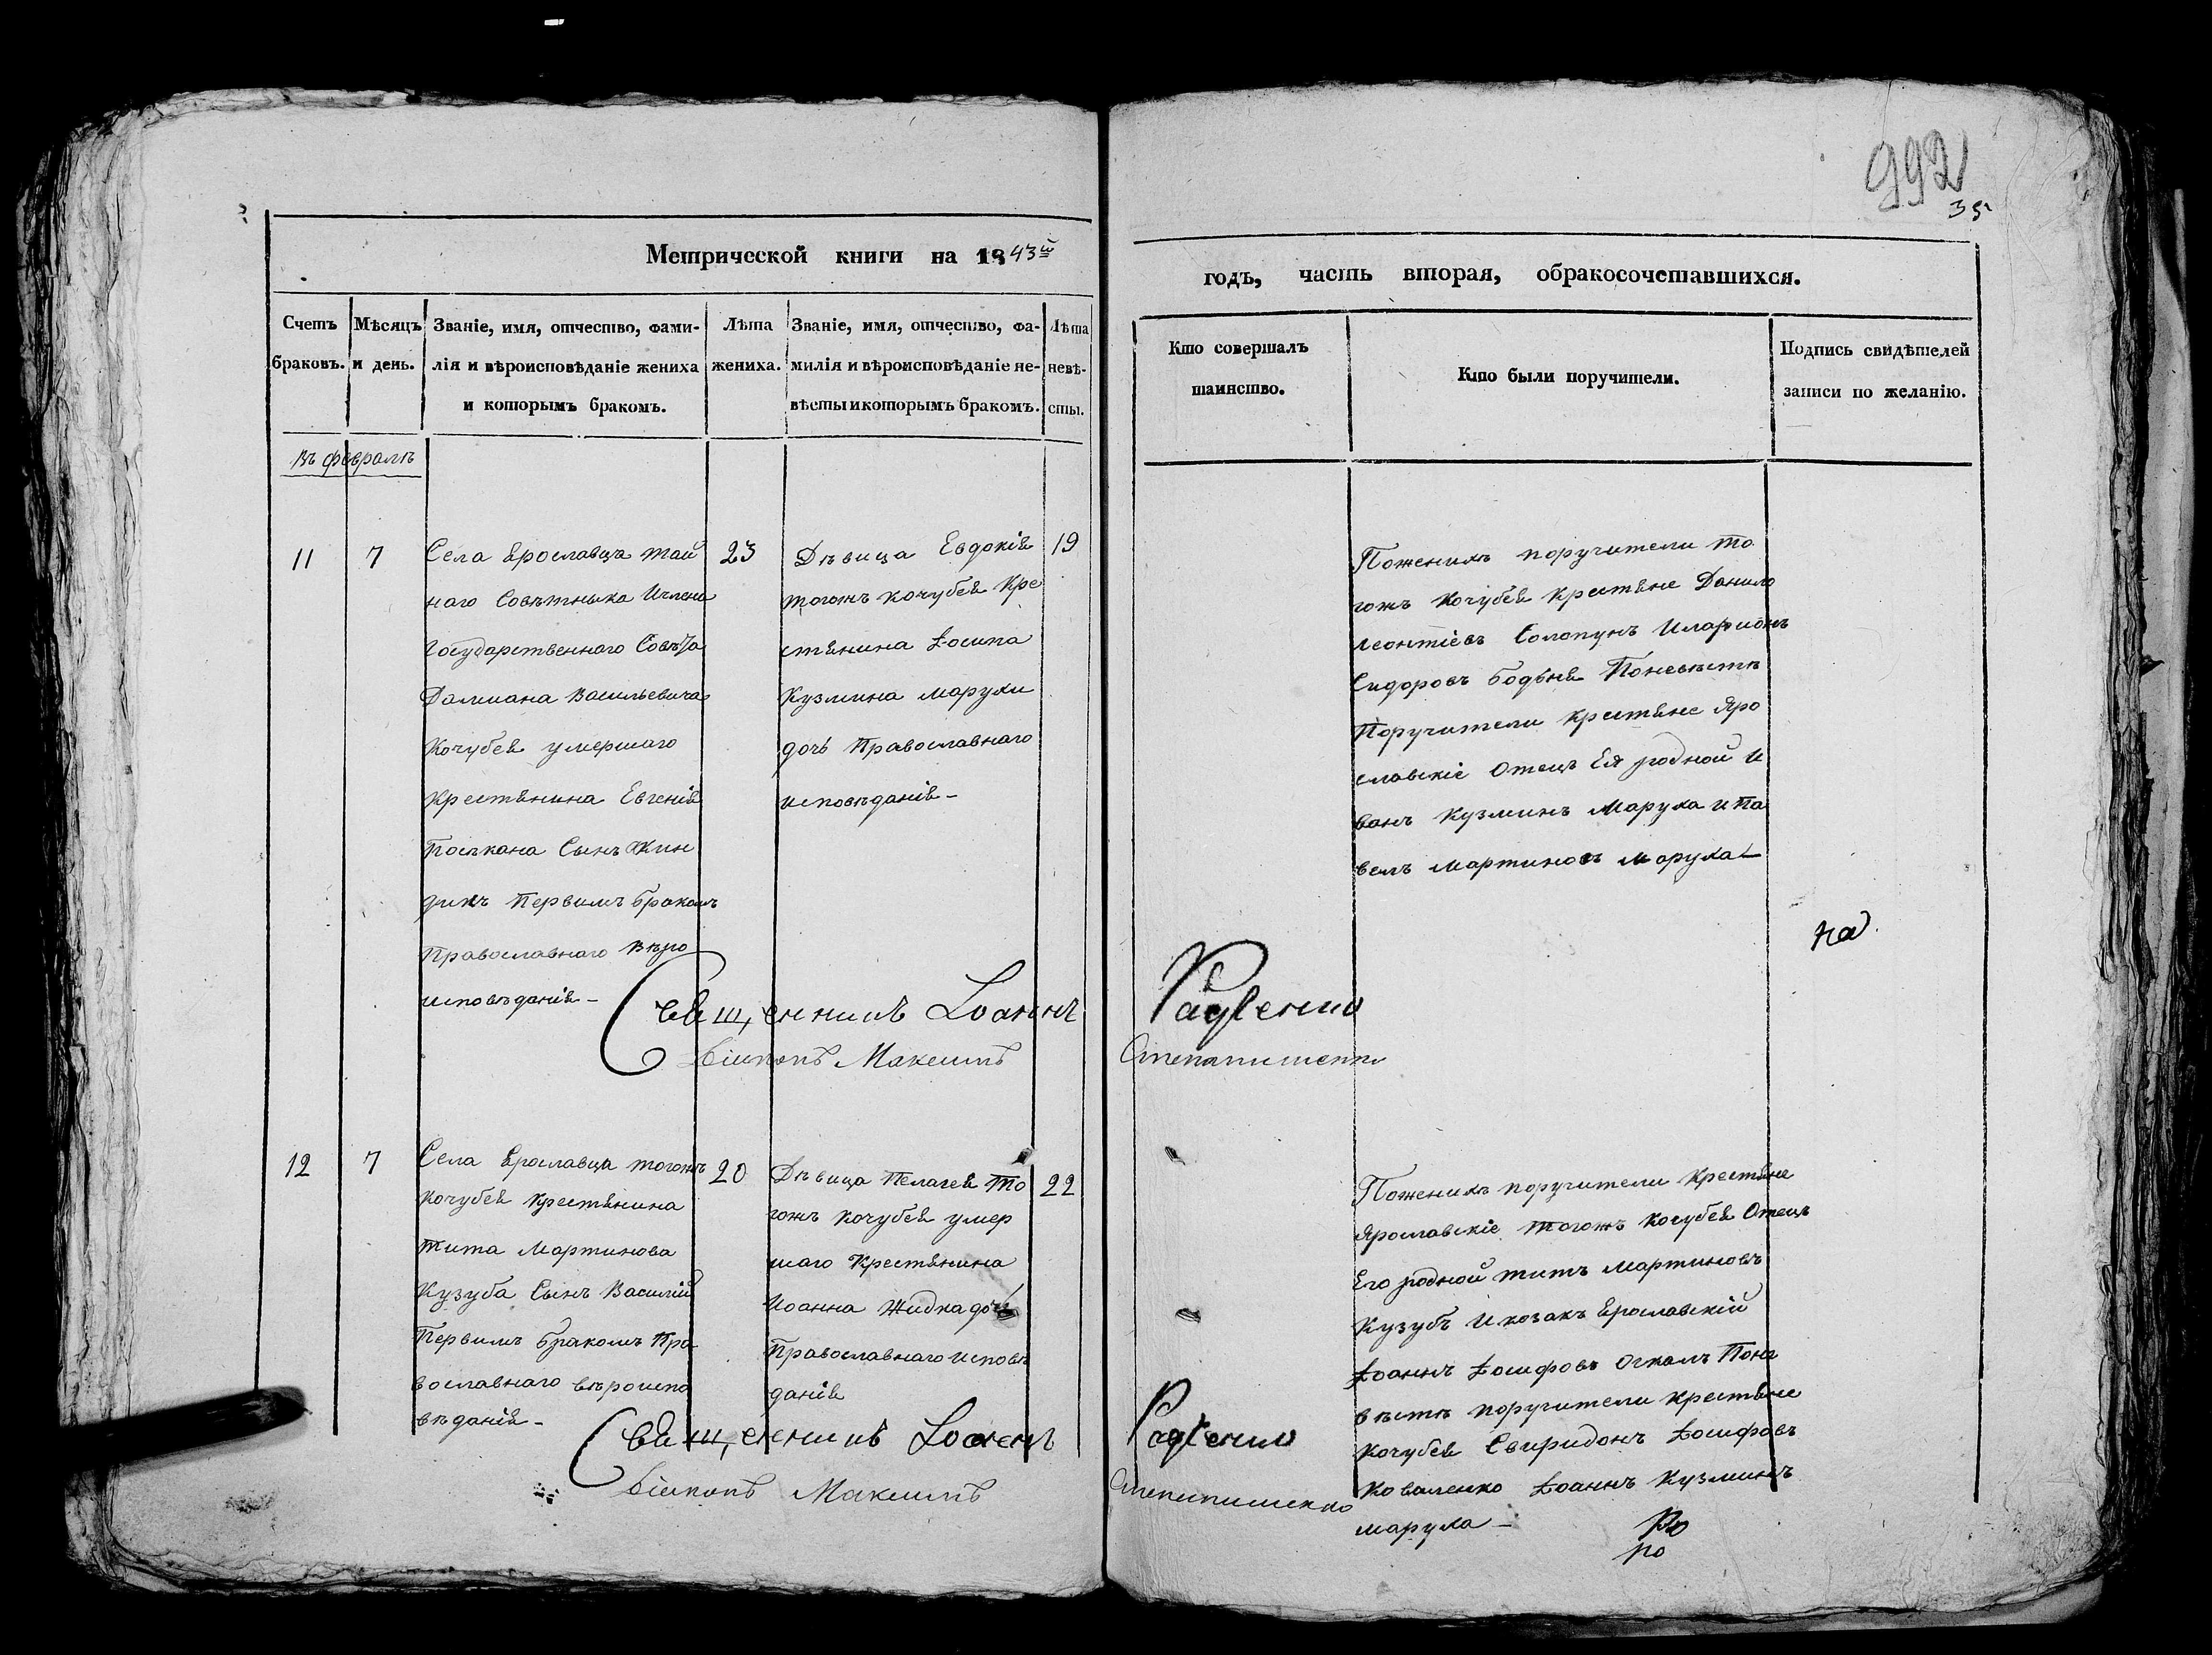 992
35
Метрической книги на 1843й
годъ, часть вторая, обракосочетавшихся.
Счетъ браковъ.
Мѣсяцъ и день.
Званіе, имя, отчество, фами-
лія и вѣроисповѣданіе жениха
и которымъ бракомъ.
Лѣта
жениха.
Званіе, имя, отчество, фа-
милія и вѣроисповѣданіе не-
вѣсты и которымъ бракомъ.
Лѣта
невѣ-
сты.
Кто совершалъ
таинство.
Кто были поручители.
Подпись свидѣтелей
записи по желанію.
Въ февралѣ
11
7
Села Ярославца тай
наго Совѣтныка Ичлена
Государственного Совѣта
Домиана Васильевича
Кочубея умершаго
Крестянина Евгенія
Сынъ
первимъ бракомъ
Православнаго Вѣро
исповѣданія-
23
Дѣвица Евдокія
тогожъ кочубея Кре
стянина Іосипа
Кузмина Марухи
дочь Православнаго
исповѣданія-
19
Поженихѣ поручители то
гожъ Кочубея крестяне Данило
леонтіевъ Солопунъ Иларионъ
Сидоровъ Поневѣстѣ
Поручители крестяне Яро
славскіе отецъ Ея родной И
ванъ Кузминъ Маруха и Па
велъ Мартиновъ Маруха-
на
Священникъ Іоаннъ Радченко
Максимъ
12
7
Села Ярославца тогожъ
Кочубея Крестянина
Тита Мартинова
Кузуба Сынъ Василій
Первимъ бракомъ Пра
вославнаго вѣроиспо
вѣданія-
20
Дѣвица Пелагея то
гожъ кочубея умер
шаго Крестянина
Иоанна Жидка дочь
Православнаго исповѣ
данія
22
Поженихѣ поручители Крестяне
Ярославскіе тогожъ Кочубея Отецъ
Его родной титъ Мартиновъ
Кузубъ И козакъ Ярославскій
Іоаннъ Іосифовъ Поне
вѣстѣ поручители крестяне
Кочубея Свиридонъ Іосифовъ
Коваленко Іоаннъ Кузминъ
маруха-
Священникъ Іоаннъ Радченко
Максимъ
ро